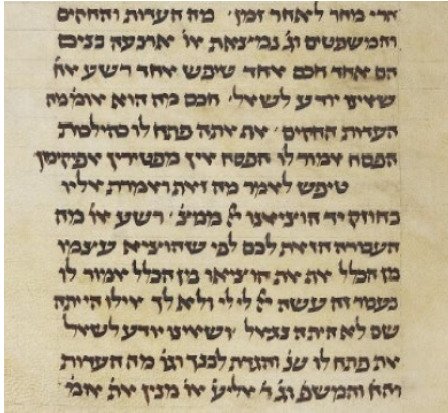 הרי מחר לאחר זמן׳ מה העדות והחקים
והמשפטים וג׳ נמיצאת או׳ ארבעה בנים
הם אחד חכם אחד טיפש אחד רשע אח׳
שאינו יודע לשאל׳ חכם מה הוא אומ׳ מה
העדות החקים׳ אף אתה פתח לו כהילכות
הפסח אמור לו הפסח אין מפטירין אפיקומן
טיפש לאמר מה זאת ואמרת אליו
בחוזק יד הוציאנו יי ממצ׳ רשע או׳ מה
העבודה הזאת לכם לפי שהוציא עצמו
מן הכלל אף את הוציאו מן הכלל אמור לו
בעבור זה עשה יי לי לי ולא לך אילו הייתה
שם לא היתה נגאל׳ ושאינו יודע לשאל
את פתח לו שנ׳ והגדת לבנך וגו׳ מה העדות
והח׳ והמשפ׳ וג׳ ר׳ אליע׳ או׳ מנין את אומ׳